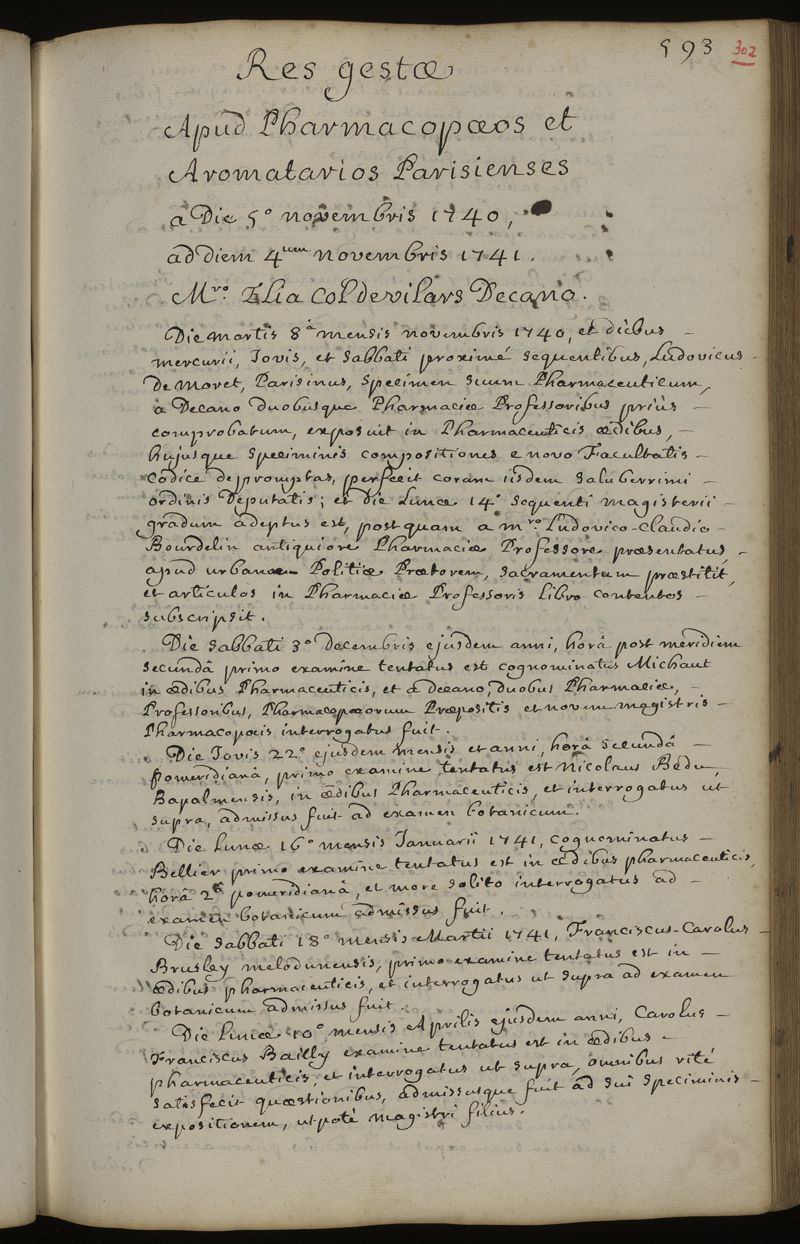 593 302
Res gestæ
Apud Pharmacopœos et
Aromatarios Parisienses
a Die 5° novembris 1740,
ad diem 4um novembris 1741.
Mro. Elia Col de vilars Decano.
Die martis 8a mensis novembris 1740, et diebus
mercurii, Jovis, et Sabbati proximé sequentibus, Ludovicus
De Moret, Parisinus, Specimen suum Pharmaceuticum,
a Decano duobusque Pharmaciæ Professoribus priùs
comprobatum, exposuit in Pharmaceuticis ædibus,
hujusque Speciminis compositiones e novo Facultatis
Codice depromptas, perfecit coram iisdem Saluberrimi
ordinis Deputatis; et die Lunæ 14° sequenti magisterii
gradum adeptus est, postquam a mro. Ludovico-Claudio
Bourdelin antiquiore Pharmaciæ Professore præsentatus,
apud urbanæ Politiæ Prætorem, sacramentum præstitit,
et articulos in Pharmaciæ Professoris Libro contentos
subscripsit.
Die Sabbati 3° decembris ejusdem anni, horâ post meridiem
secundâ primo examine tentatus est cognominatus Michaut
in ædibus Pharmaceuticis, et a decano, duobus Pharmaciæ,
Professoribus, Pharmacopæorum Præpositis et novem magistris
Pharmacopæis interrogatus fuit.
Die Jovis 22° ejusdem mensis et anni, horâ secundâ
pomeridianâ, primo examine tentatus est Nicolaus Bedu,
Bapalmensis, in ædibus Pharmaceuticis, et interrogatus ut
supra, admissus fuit ad examen botanicum.
Die Lunæ 16° mensis Januarii 1741, cognominatus
Bellier primo examine tentatus est in ædibus pharmaceuticis,
horâ 2â pomeridianâ, et more solito interrogatus ad
examen botanicum admissus fuit.
Die Sabbati 18° mensis Martii 1741, Franciscus-Carolus
Brusley melodunensis, primo examine tentatus est in
ædibus pharmaceuticis, et interrogatus ut supra ad examen
botanicum admissus fuit.
Die Lunæ 10° mensis Aprilis ejusdem anni, Carolus
Franciscus Bailly examine tentatus est in ædibus
pharmaceuticis, et interrogatus ut supra, omnibus rité
satisfecit quæstionibus, admissusque fuit ad sui speciminis
expositionem, utpotè magistri filius.